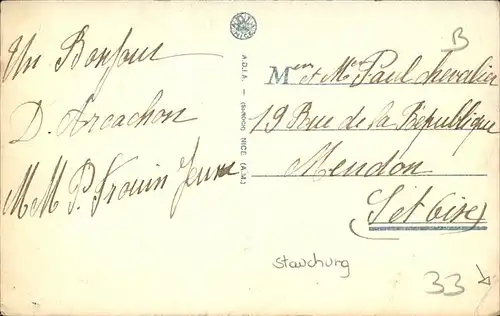 Un Bonjour
D. Arcachon
M M P. Frouin Jeune
A.D.I.A. — NICE (A.M.)
B
Mr et Me Paul Chevalier
19 Rue de la République
Meudon
(S et Oise)
Stauchung
33